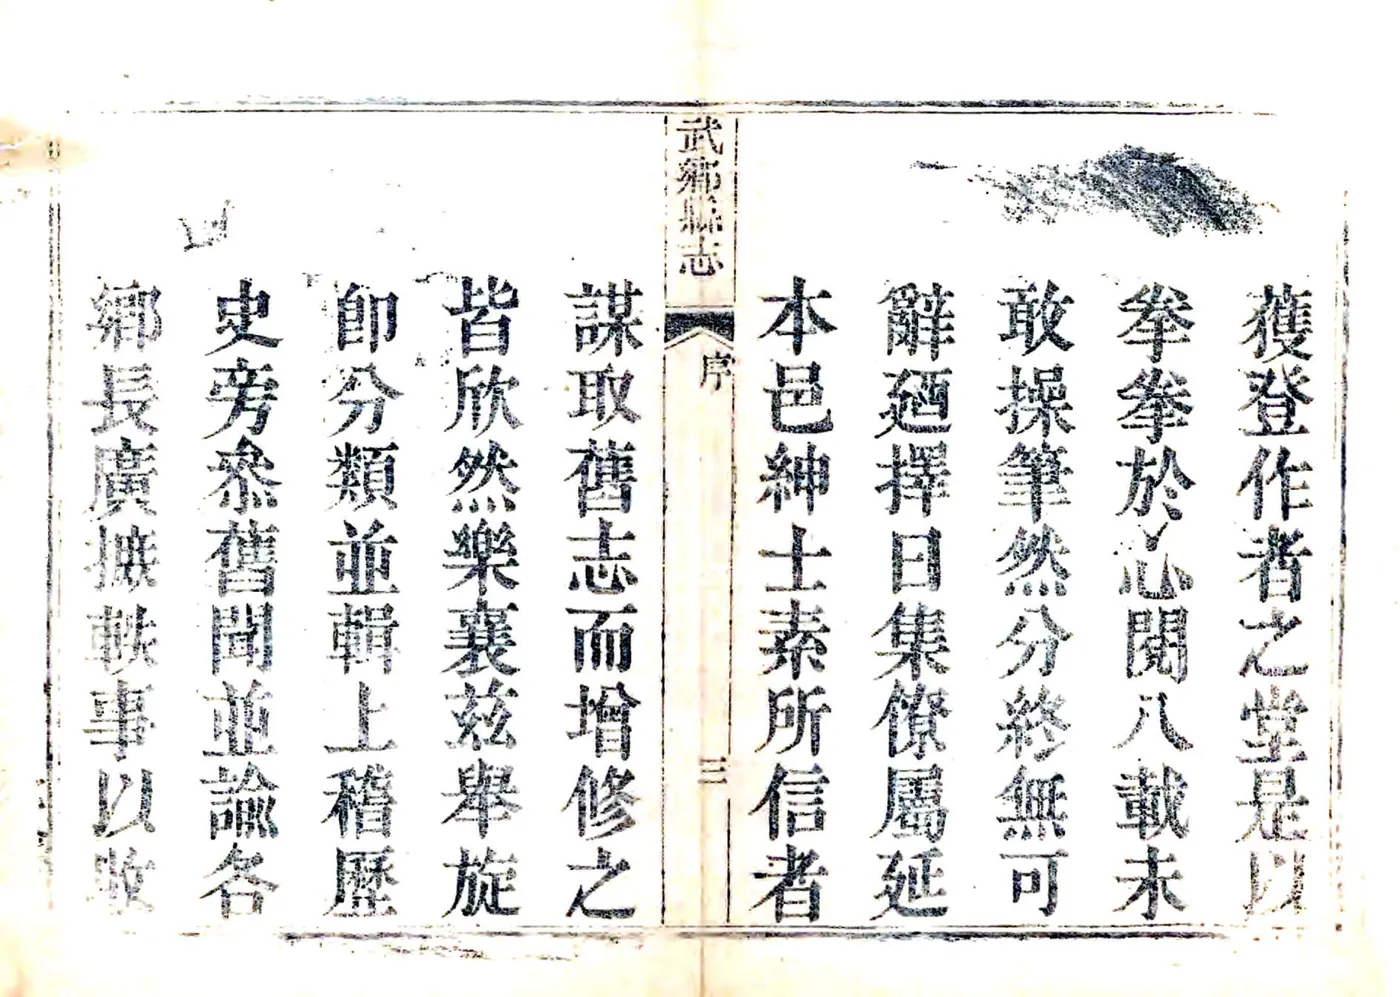 獲登作者之堂是以
拳拳於心閱八載未
敢操筆然分終無可
辭廼擇日集僚屬延
本邑紳士素所信者
武鄉縣志
序
三
謀取舊志而增修之
皆欣然樂襄茲舉旋
卽分類並輯上稽歷
史旁叅舊聞並諭各
鄉長廣摭軼事以收